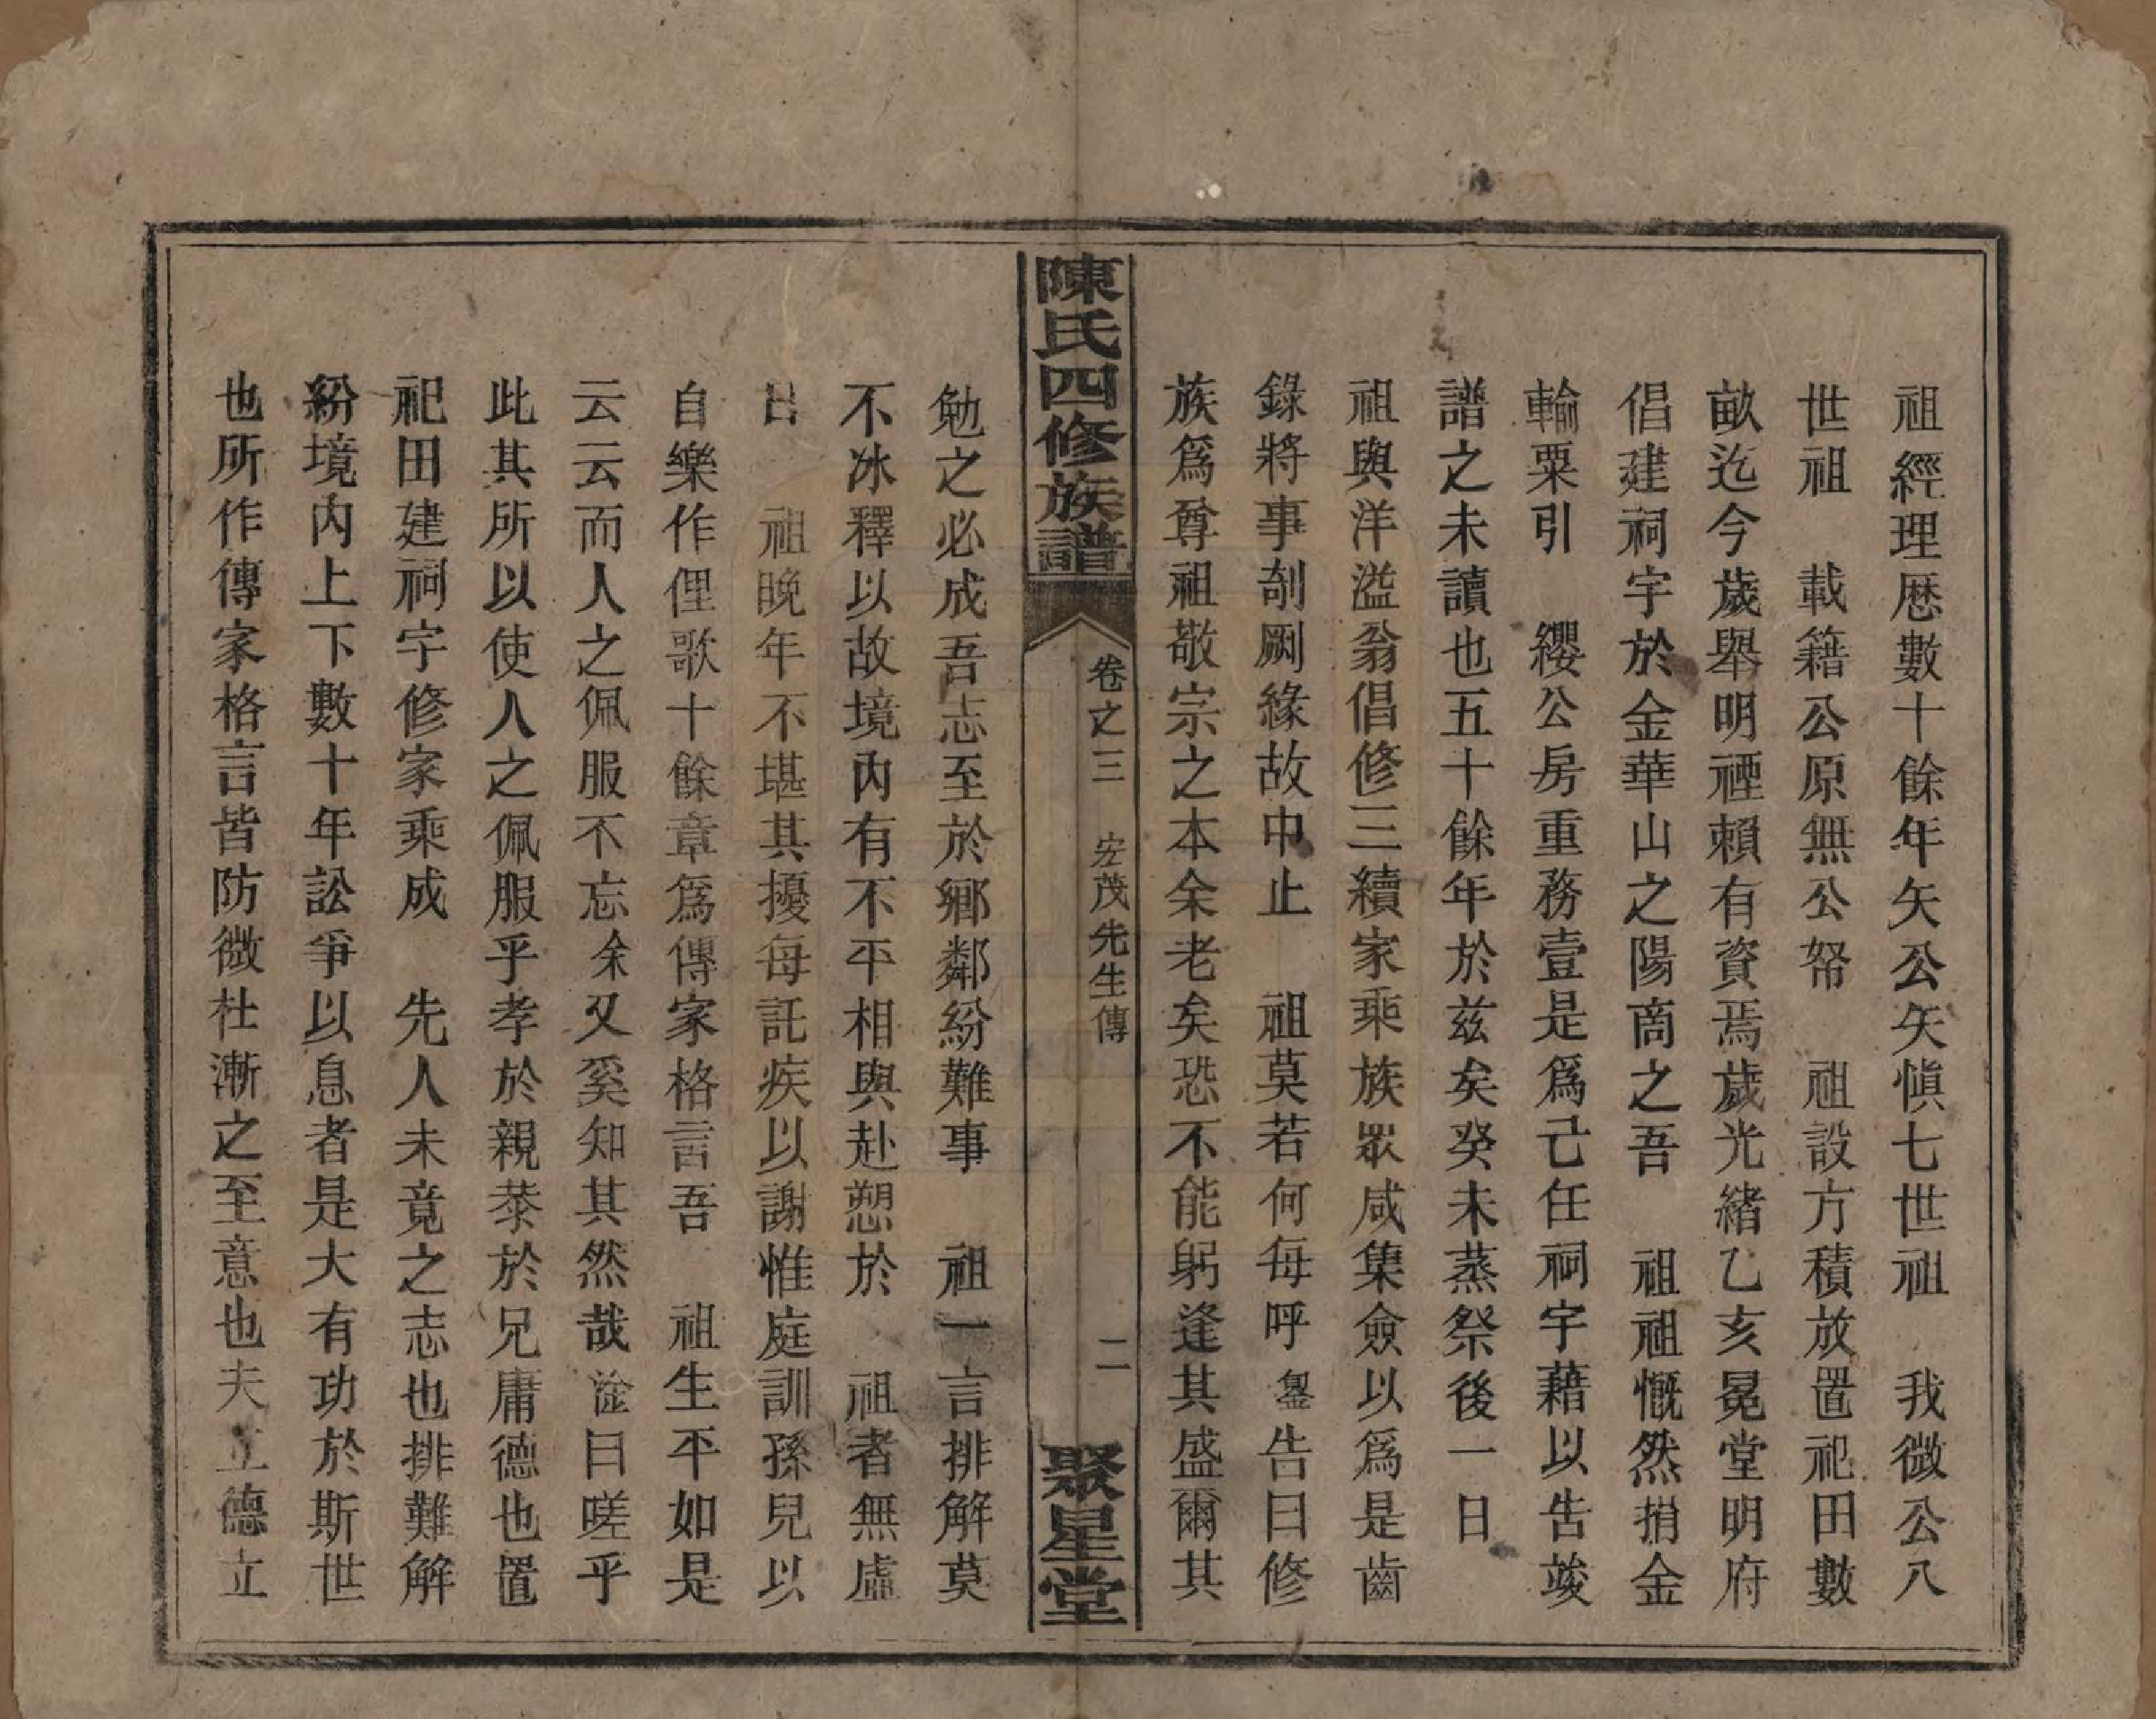 祖經理歷數十餘年矢公矢愼七世祖　我微公八
世祖　載籍公原無公帑　祖設方積放置祀田數
畝迄今歲舉明禋賴有資焉歲光緒乙亥冕堂明府
倡建祠宇於金華山之陽商之吾　祖祖慨然捐金
輸粟引　纓公房重務壹是爲己任祠宇藉以告竣
譜之未讀也五十餘年於兹矣癸未蒸祭後一日
祖與洋溢翁倡修三續家乘族眾咸集僉以爲是齒
錄將事剞劂緣故中止　祖莫若何每呼鋆告曰修
族爲尊祖敬宗之本余老矣恐不能躬逢其盛爾其
陳氏四修族譜
卷之三　宏茂先生傳
二
聚星堂
勉之必成吾志至於鄉鄰紛難事　祖一言排解莫
不冰釋以故境內有不平相與赴愬於　祖者無虛
日　祖晚年不堪其擾每託疾以謝惟庭訓孫兒以
自樂作俚歌十餘章爲傳家格言吾　祖生平如是
云云而人之佩服不忘余又奚知其然哉淦曰嗟乎
此其所以使人之佩服乎孝於親恭於兄庸德也置
祀田建祠宇修家乘成　先人未竟之志也排難解
紛境內上下數十年訟爭以息者是大有功於斯世
也所作傳家格言皆防微杜漸之至意也夫立德立